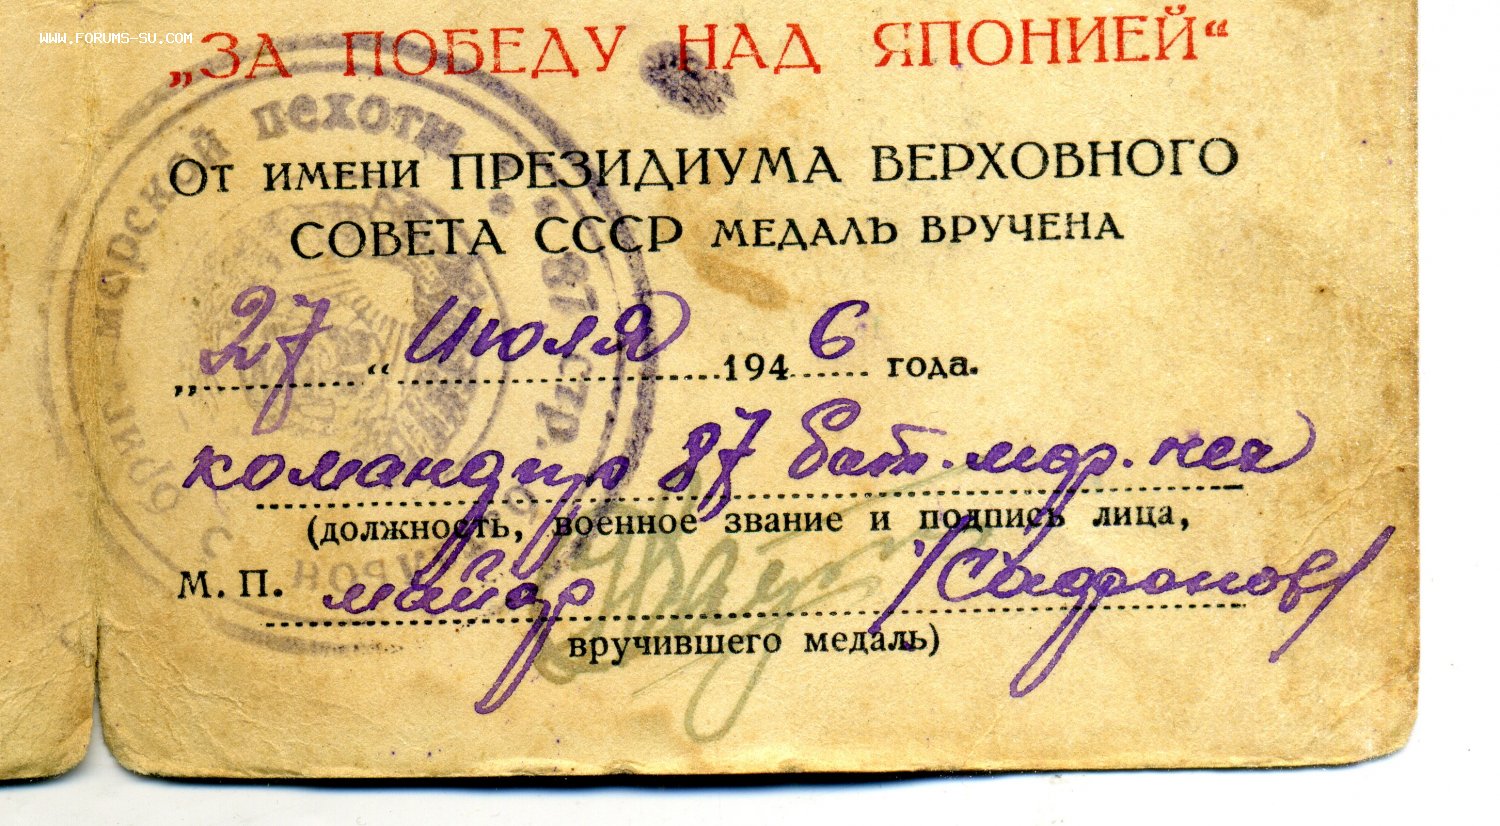 WWW.FORUMS-SU.COM
„ЗА ПОБЕДУ НАД ЯПОНИЕЙ“
От имени ПРЕЗИДИУМА ВЕРХОВНОГО
СОВЕТА СССР МЕДАЛЬ ВРУЧЕНА
„27“ Июля 1946 года.
командир 87 бат. мор. пех
(должность, военное звание и подпись лица,
М. П. майор /Сафронов/
вручившего медаль)
бриг. морской пехоты
87 стр.